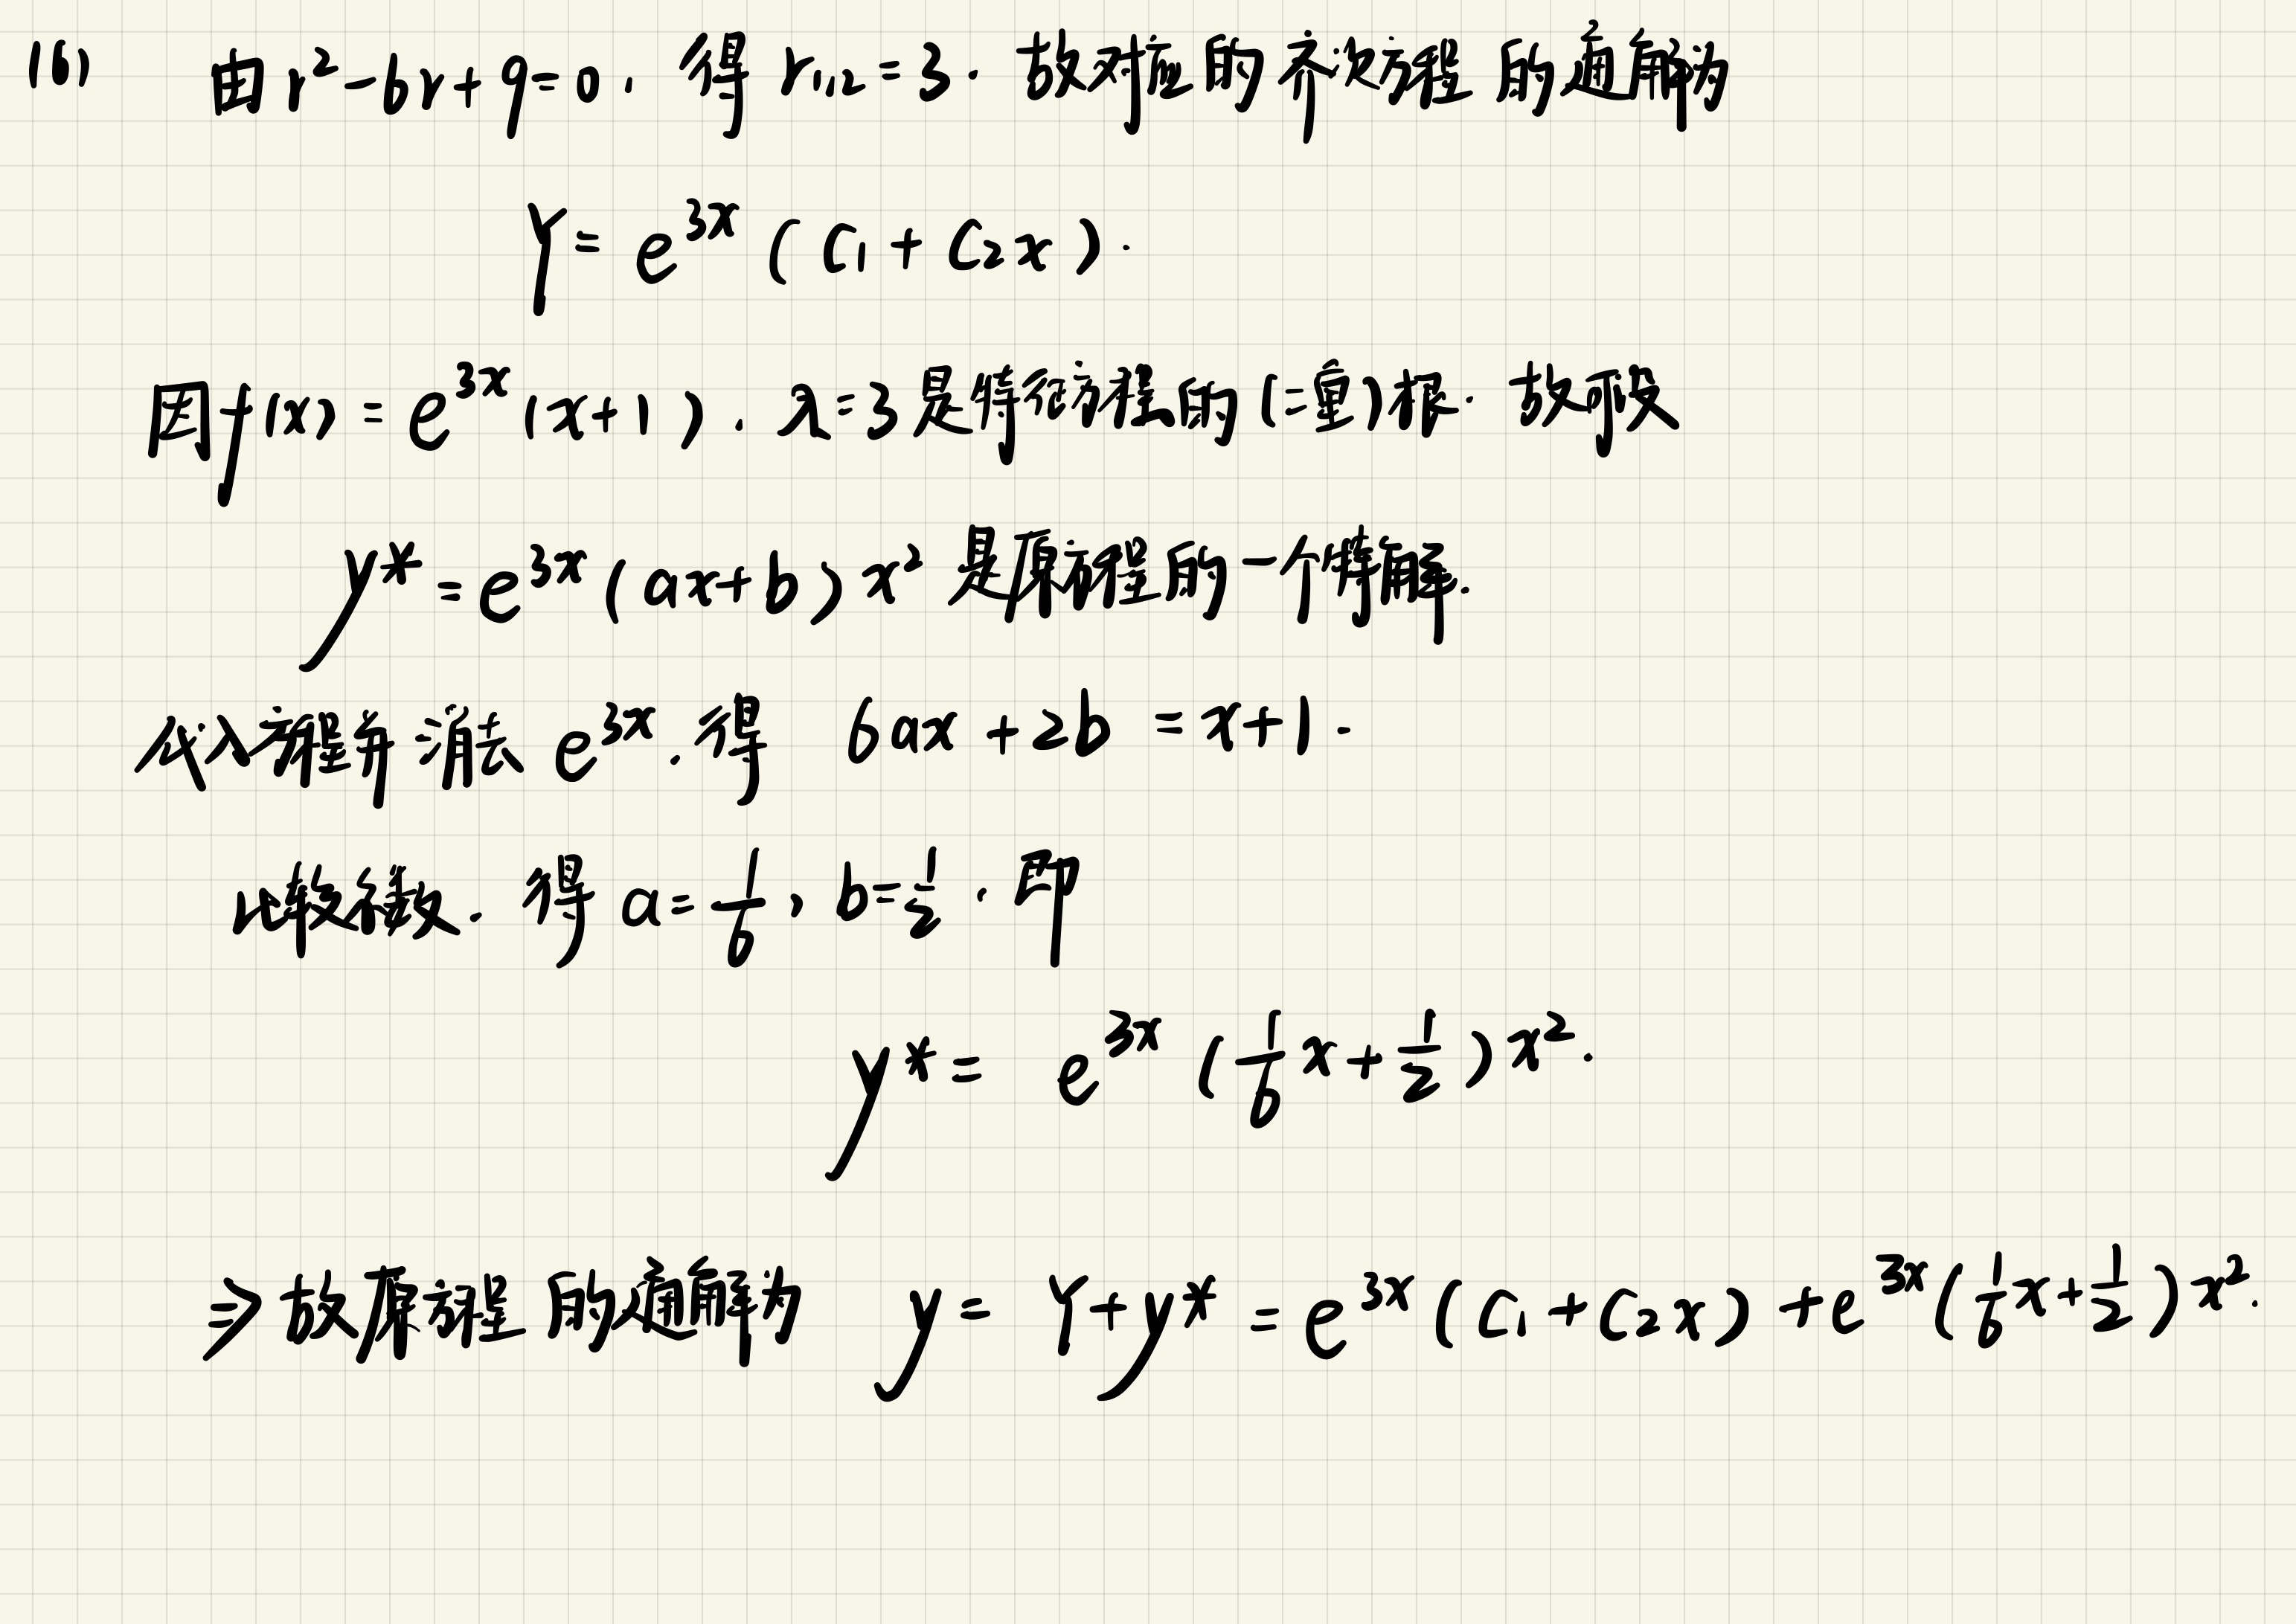 (6) 由 r²-6r+9=0, 得 r₁,₂=3. 故对应的齐次方程的通解为
Y = e^{3x} (C₁ + C₂x).
因f(x) = e^{3x}(x+1), λ=3是特征方程的(二重)根. 故可设
y* = e^{3x}(ax+b)x² 是原方程的一个特解.
代入方程并消去 e^{3x}. 得 6ax+2b = x+1.
比较系数. 得 a=1/6, b=1/2. 即
y* = e^{3x} (1/6 x + 1/2) x².
⇒ 故原方程的通解为 y = Y+y* = e^{3x}(C₁+C₂x) + e^{3x}(1/6 x + 1/2) x².